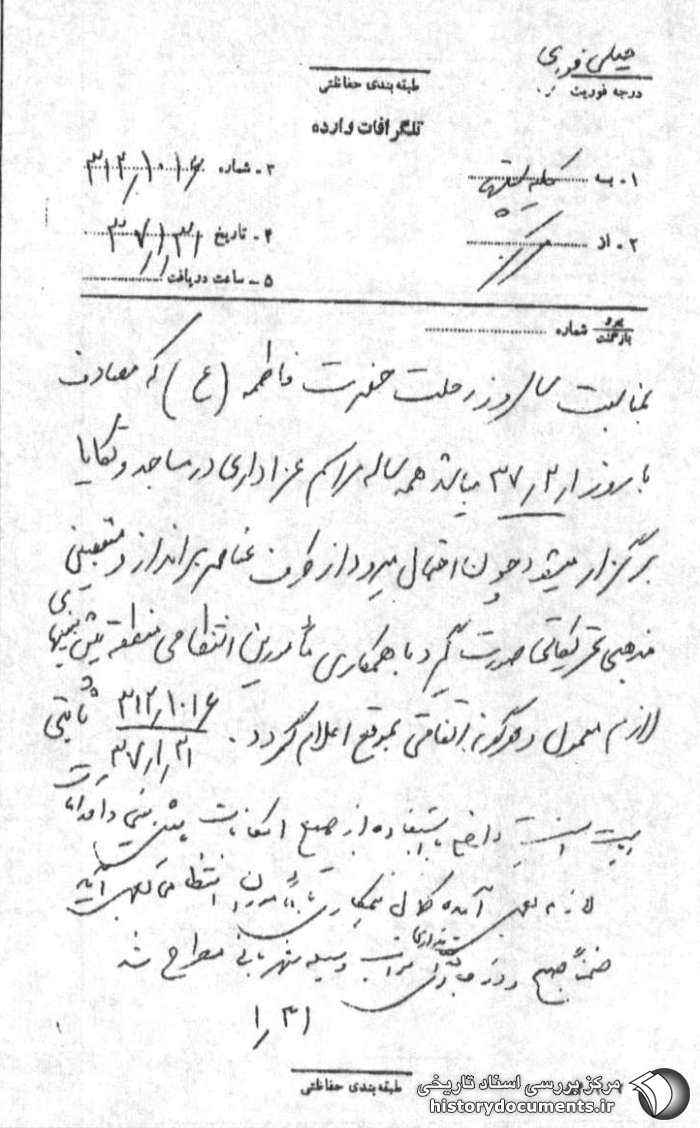 خیلی فوری
درجه فوریت
طبقه بندی حفاظتی
تلگرافات وارده
۱ـ به کلیه
۳ـ شماره ۳۱۲/۱۰۱۶
۲ـ از مرکز
۴ـ تاریخ ۳۷/۱/۳۱
۵ـ ساعت دریافت
شماره
بازگشت
بمناسبت سالروز رحلت حضرت فاطمه (ع) که مصادف
با روز ۳۷/۲/۱ میباشد همه ساله مراسم عزاداری در مساجد و تکایا
برگزار میشود چون احتمال میرود از طرف عناصر برانداز و متعصبین
مذهبی تحریکاتی صورت گیرد با همکاری مأمورین انتظامی منطقه پیش بینیهای
لازم معمول و هرگونه اتفاقی بموقع اعلام گردد. ۳۱۲/۱۰۱۶ ثابتی
۳۷/۱/۳۱
با استفاده از جمیع امکانات پیش بینی و اقدامات
لازم بعمل آمده همکاری با مأمورین انتظامی بعمل آید
ضمناً صبح روز مراتب وسیله شهربانی شد
۱/۳۱
طبقه بندی حفاظتی
مرکز بررسی اسناد تاریخی
historydocuments.ir